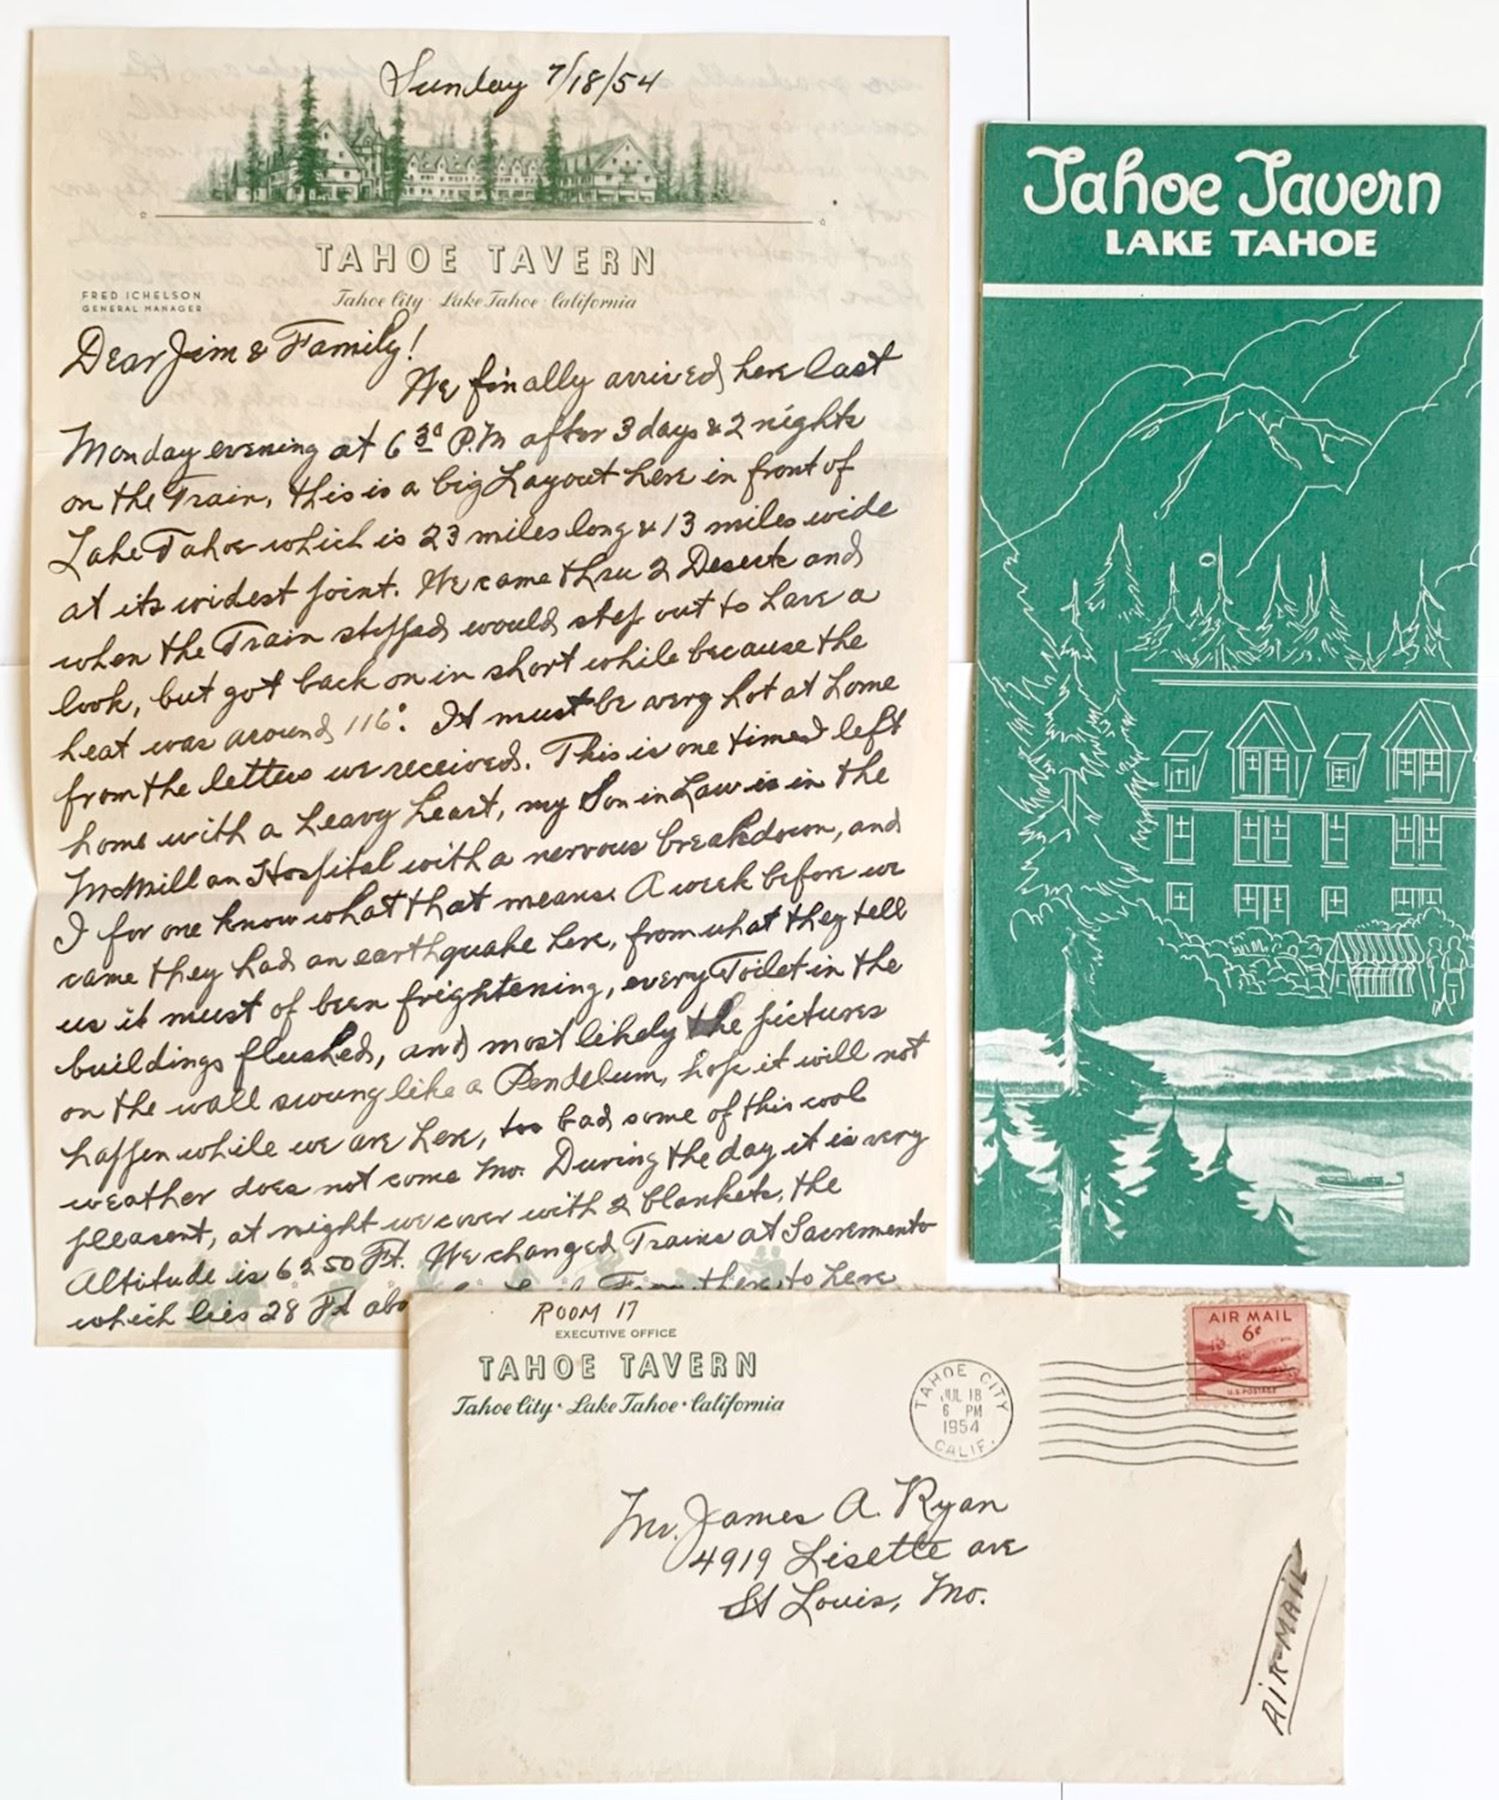 Sunday 7/18/54
TAHOE TAVERN
FRED ICHELSON
GENERAL MANAGER
Tahoe City · Lake Tahoe · California
Dear Jim & Family!
We finally arrived here last
Monday evening at 6 30 P.M after 3 days & 2 nights
on the Train, this is a big Layout here in front of
Lake Tahoe which is 23 miles long & 13 miles wide
at its widest point. We came thru 2 Deserts and
when the Train stopped, would step out to have a
look, but got back on in short while because the
heat was around 116°. It must be very hot at home
from the letters we received. This is one time I left
home with a heavy heart, my Son in Law is in the
McMillan Hospital with a nervous breakdown, and
I for one know what that means. A week before we
came they had an earthquake here, from what they tell
us it must of been frightening, every Toilet in the
buildings flushed, and most likely the pictures
on the wall swung like a Pendelum, hope it will not
happen while we are here, too bad some of this cool
weather does not come Mo. During the day it is very
pleasent, at night we cover with 2 blankets, the
Altitude is 6250 Ft. We changed Trains at Sacremento
which lies 28 Ft abo From there to here
Tahoe Tavern
LAKE TAHOE
ROOM 17
EXECUTIVE OFFICE
TAHOE TAVERN
Tahoe City · Lake Tahoe · California
TAHOE CITY
JUL 18
6 PM
1954
CALIF.
AIR MAIL
6¢
U.S. POSTAGE
Mr. James A. Ryan
4919 Lisette ave
St Louis, Mo.
AIR-MAIL